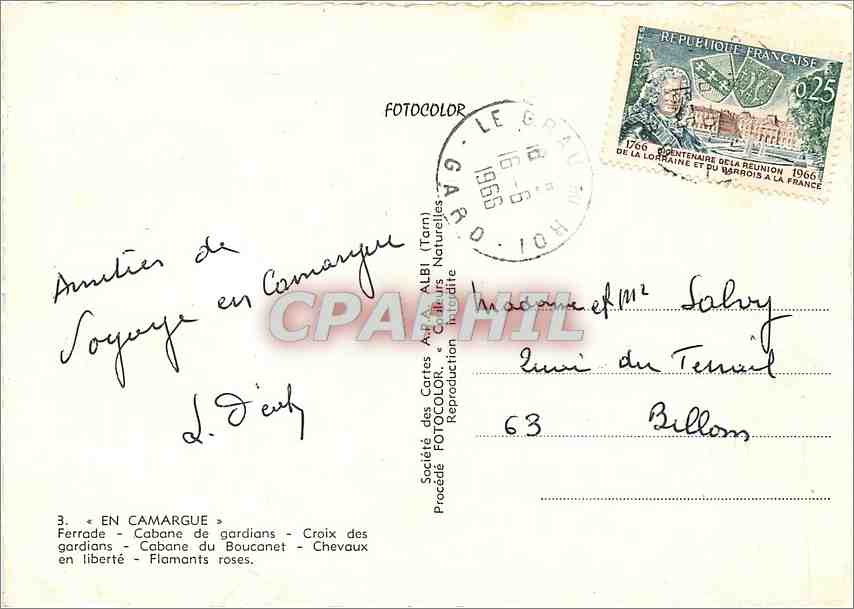 FOTOCOLOR
RÉPUBLIQUE FRANÇAISE
POSTES
0,25
1766 BICENTENAIRE DE LA REUNION 1966
DE LA LORRAINE ET DU BARROIS A LA FRANCE
LE GRAU DU ROI
18
16-6
1966
GARD
Amitiés de
Voyage en Camargue
CPAPHIL
Société des Cartes A.P.A. ALBI (Tarn)
Procédé FOTOCOLOR. « Couleurs Naturelles
Reproduction interdite
Madame et Mr Salvy
du Terrail
63 Billom
3. « EN CAMARGUE »
Ferrade - Cabane de gardians - Croix des
gardians - Cabane du Boucanet - Chevaux
en liberté - Flamants roses.